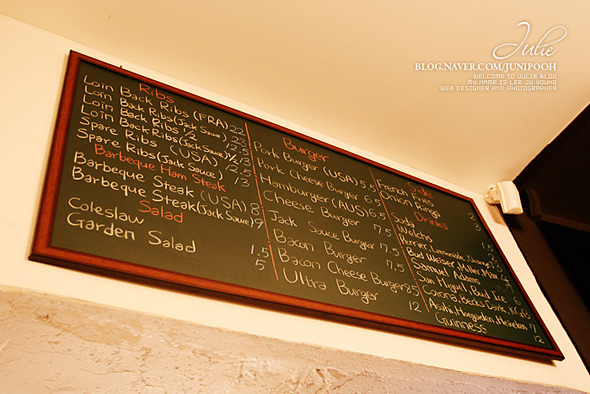 Julie
BLOG.NAVER.COM/JUNIPOOH
WELCOME TO JULIE BLOG
MY NAME IS LEE JU YOUNG
WEB DESIGNER AND PHOTOGRAPHER
Ribs
Loin Back Ribs (FRA) 22
Loin Back Ribs (Jack Sauce) 23
Loin Back Ribs 1/2
Loin Back Ribs (Jack Sauce) 1/2 13
Spare Ribs (USA) 12.5
Spare Ribs (Jack Sauce) 13
Barbeque Ham Steak
Barbeque Steak (USA) 8
Barbeque Steak (Jack Sauce) 9
Salad
Coleslaw 1.5
Garden Salad 5
Burger
Pork Burger (USA) 5.5
Pork Cheese Burger 6.5
Hamburger (AUS) 6.5
Cheese Burger 7.5
Jack Sauce Burger 7.5
Bacon Burger 7.5
Bacon Cheese Burger 8.5
Ultra Burger 12
Side
French Fries
Onion Rings 3
Drinks
Soda
Welchs
Perrier
Bud Weiser, Miller
Samuel Adams
San Miguel, Bud Ice 6
Corona, Becks Dark, KGB
Asahi, Hoegaarden, Heineken 7
Guinness 12